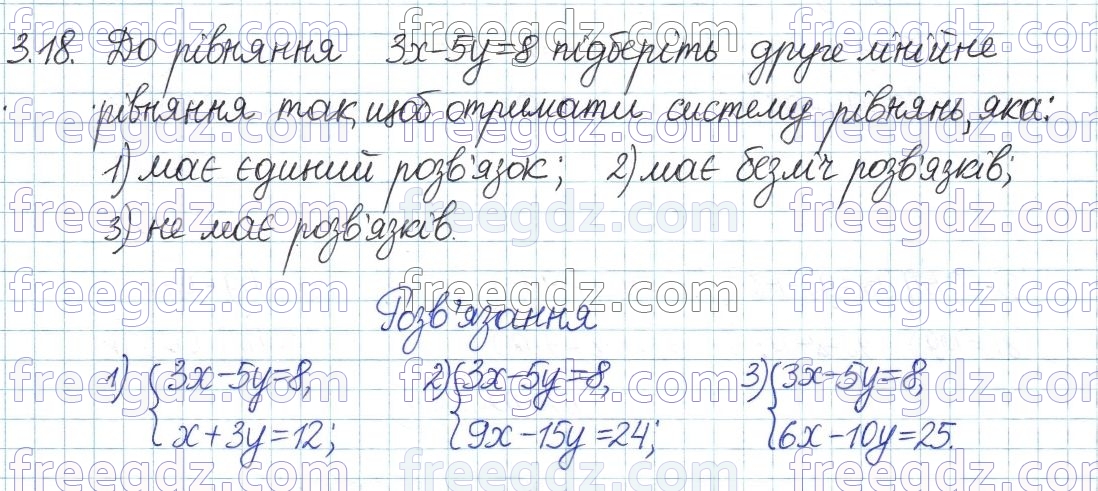 3.18. До рівняння 3x-5y=8 підберіть друге лінійне
рівняння так, щоб отримати систему рівнянь, яка:
1) має єдиний розв'язок; 2) має безліч розв'язків;
3) не має розв'язків.
Розв'язання
1) {3x-5y=8, 2) {3x-5y=8, 3) {3x-5y=8,
x+3y=12; 9x-15y=24; 6x-10y=25.
freegdz.com